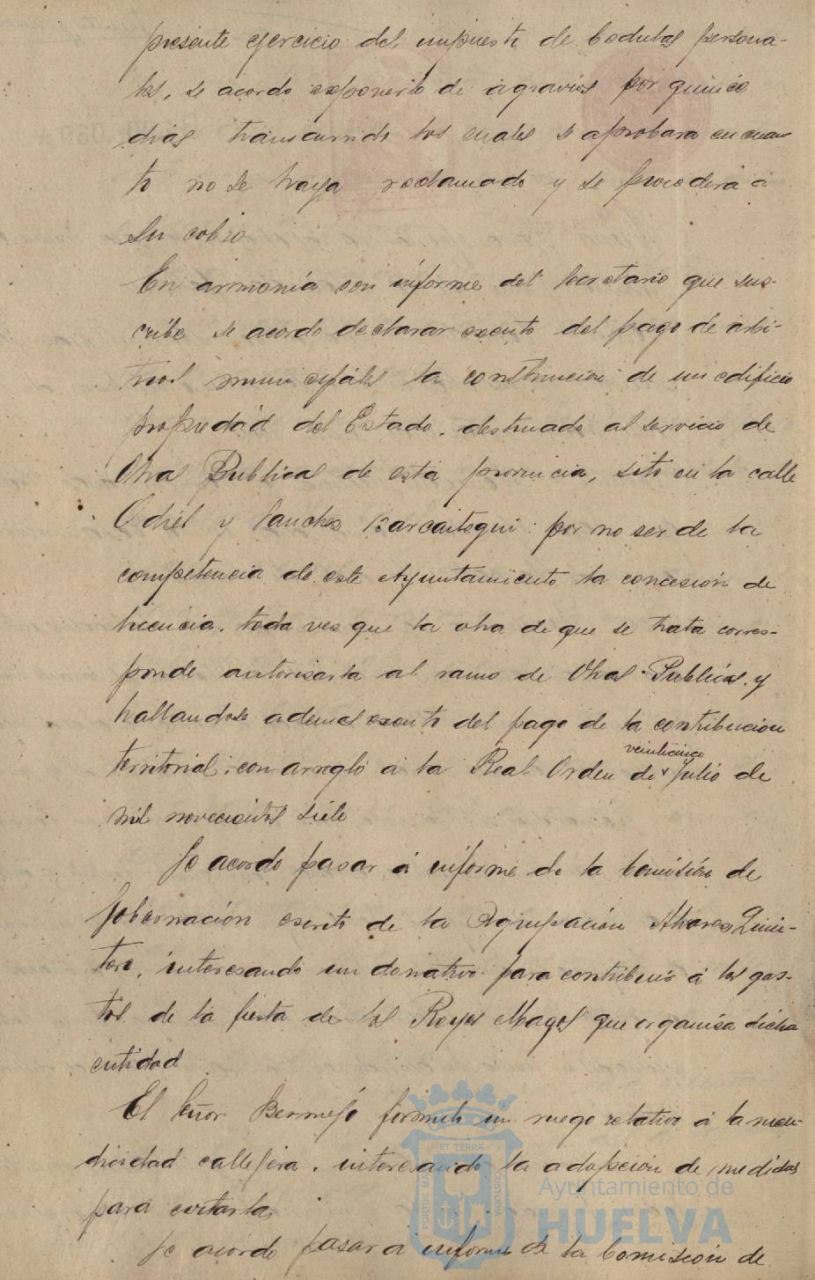 presente ejercicio del impuesto de Cedulas persona-
les, se acordo exponerlo de agravios por quince
dias transcurrido los cuales se aprobara en cuan-
to no se haya reclamado y se procedera a
su cobro
En armonía con informe del secretario que sus-
cribe se acordo declarar exento del pago de arbi-
trios municipales la construccion de un edificio
propiedad del Estado, destinado al servicio de
Obras Publicas de esta provincia, sito en la calle
Odiel y Sanchez Barcaiztegui: por no ser de la
competencia de este Ayuntamiento la concesión de
licencia, toda vez que la obra de que se trata corres-
ponde autorizarla al ramo de Obras Publicas y
hallandose ademas exento del pago de la contribucion
territorial, con arreglo á la Real Orden de veinticinco Julio de
mil novecientos siete
Se acordo pasar á informe de la Comisión de
Gobernación escrito de la Agrupación Alvarez Quin-
tero, interesando un donativo para contribuir á los gas-
tos de la fiesta de los Reyes Magos que organiza dicha
entidad
El Señor Bermejo formuló un ruego relativo á la men-
dicidad callejera, interesando la adopción de medidas
para evitarla
Se acordo pasar a informe de la Comision de
Ayuntamiento de
HUELVA